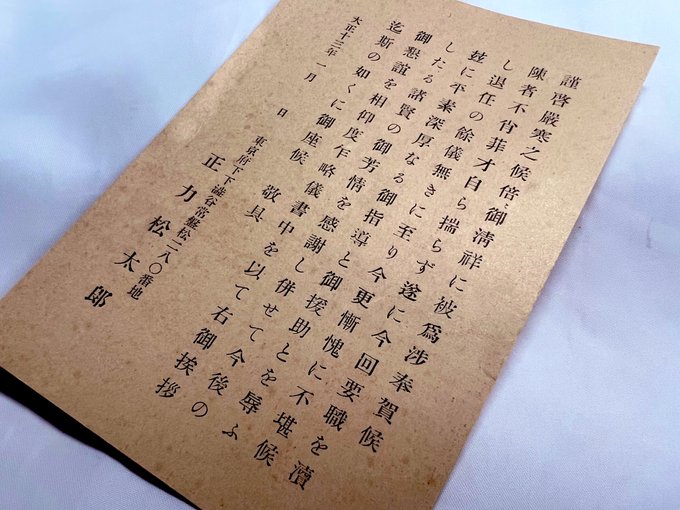 謹啓嚴寒之候倍〻御淸祥に被爲涉奉賀候
陳者不肖菲才自ら揣らず遂に今回要職を瀆
し退任の餘儀無きに至り今更慚愧に不堪候
玆に平素深厚なる御指導と御援助とを辱ふ
したる諸賢の御芳情を感謝し併せて今後の
御懇誼を相仰度乍略儀書中を以て右御挨拶
迄斯の如くに御座候 敬具
大正十三年一月 日
東京府下下澁谷常盤松二八〇番地
正力松太郎